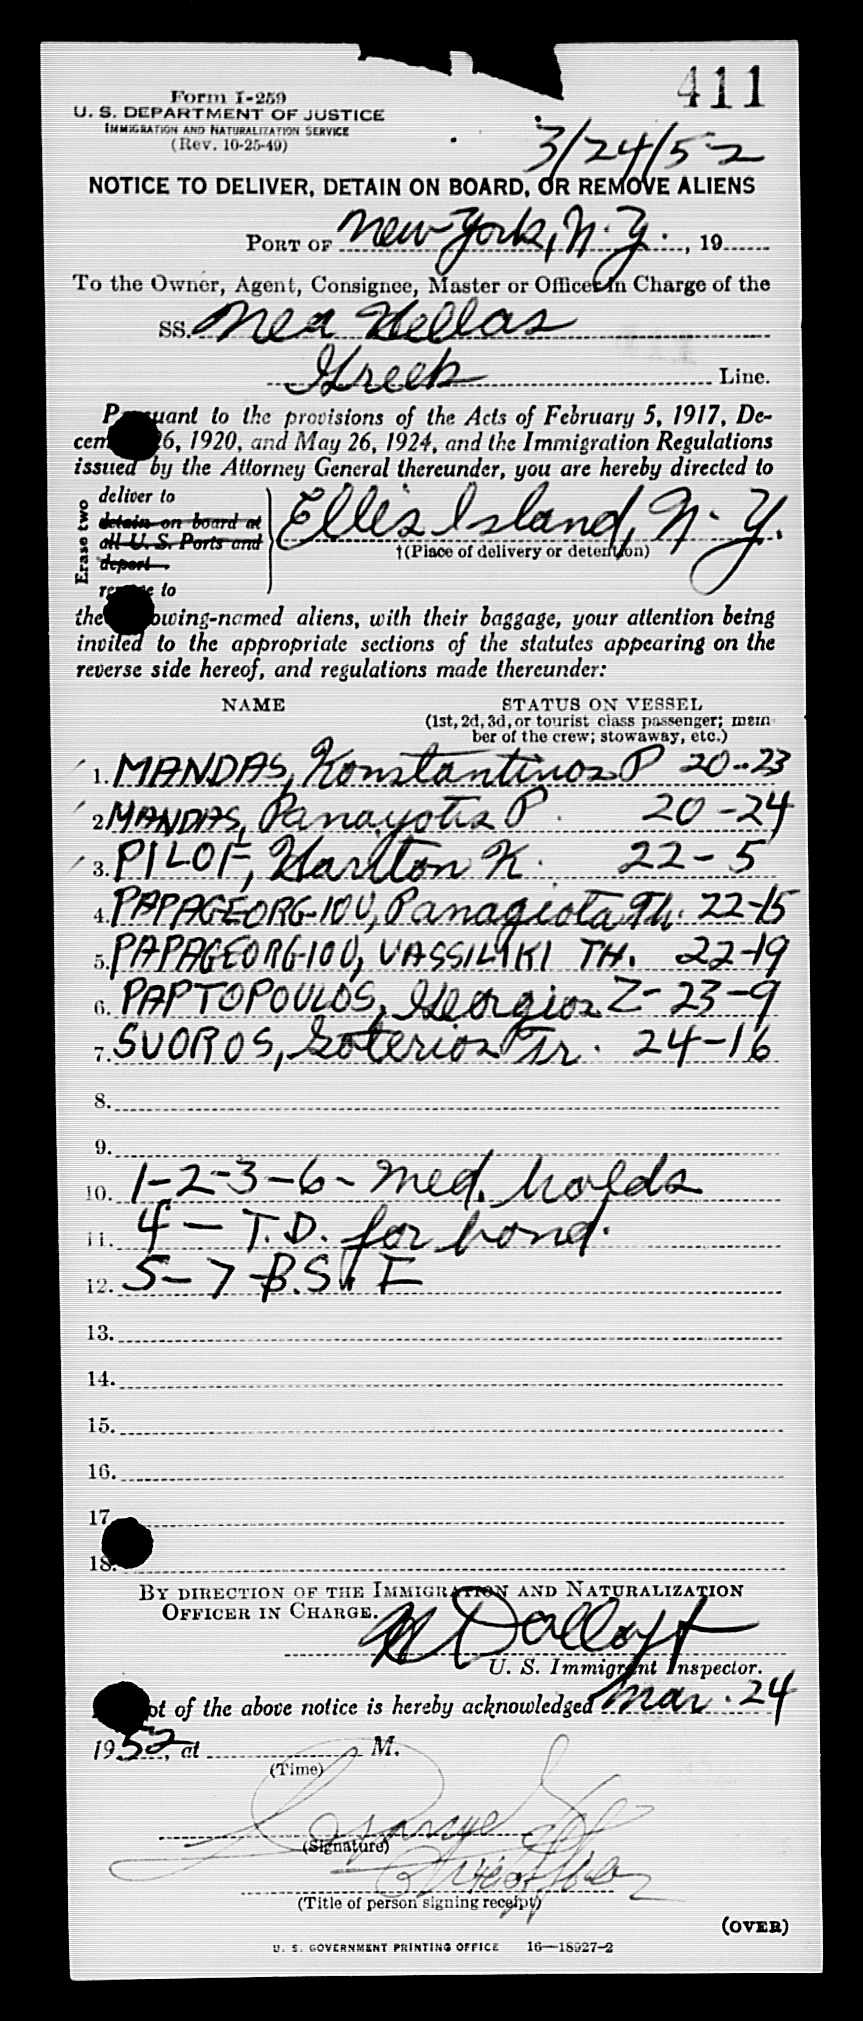 411
Form I-259
U. S. DEPARTMENT OF JUSTICE
IMMIGRATION AND NATURALIZATION SERVICE
(Rev. 10-25-49)
3/24/52
NOTICE TO DELIVER, DETAIN ON BOARD, OR REMOVE ALIENS
PORT OF New York, N. Y. , 19
To the Owner, Agent, Consignee, Master or Officer in Charge of the
SS. Nea Hellas
Greek Line.
Pursuant to the provisions of the Acts of February 5, 1917, De-
cem 26, 1920, and May 26, 1924, and the Immigration Regulations
issued by the Attorney General thereunder, you are hereby directed to
Erase two
deliver to
detain on board at
all U. S. Ports and
deport
remove to
Ellis Island, N. Y.
†(Place of delivery or detention)
the following-named aliens, with their baggage, your attention being
invited to the appropriate sections of the statutes appearing on the
reverse side hereof, and regulations made thereunder:
NAME STATUS ON VESSEL
(1st, 2d, 3d, or tourist class passenger; mem-
ber of the crew; stowaway, etc.)
1. MANDAS, Konstantinos P 20-23
2. MANDAS, Panayotis P. 20-24
3. PILOF, Harlton K. 22-5
4. PAPAGEORG-IOU, Panagiota Th. 22-15
5. PAPAGEORG-IOU, VASSILIKI TH. 22-19
6. PAPTOPOULOS, Georgios Z- 23-9
7. SVOROS, Soterios Tr. 24-16
8.
9.
10. 1-2-3-6- med. holds
11. 4 - T.D. for bond.
12. 5-7-B.S.I
13.
14.
15.
16.
17
18.
BY DIRECTION OF THE IMMIGRATION AND NATURALIZATION
OFFICER IN CHARGE.
U. S. Immigrant Inspector.
pt of the above notice is hereby acknowledged Mar. 24
1952, at M.
(Time)
(Signature)
(Title of person signing receipt)
(OVER)
U. S. GOVERNMENT PRINTING OFFICE 16—18927-2